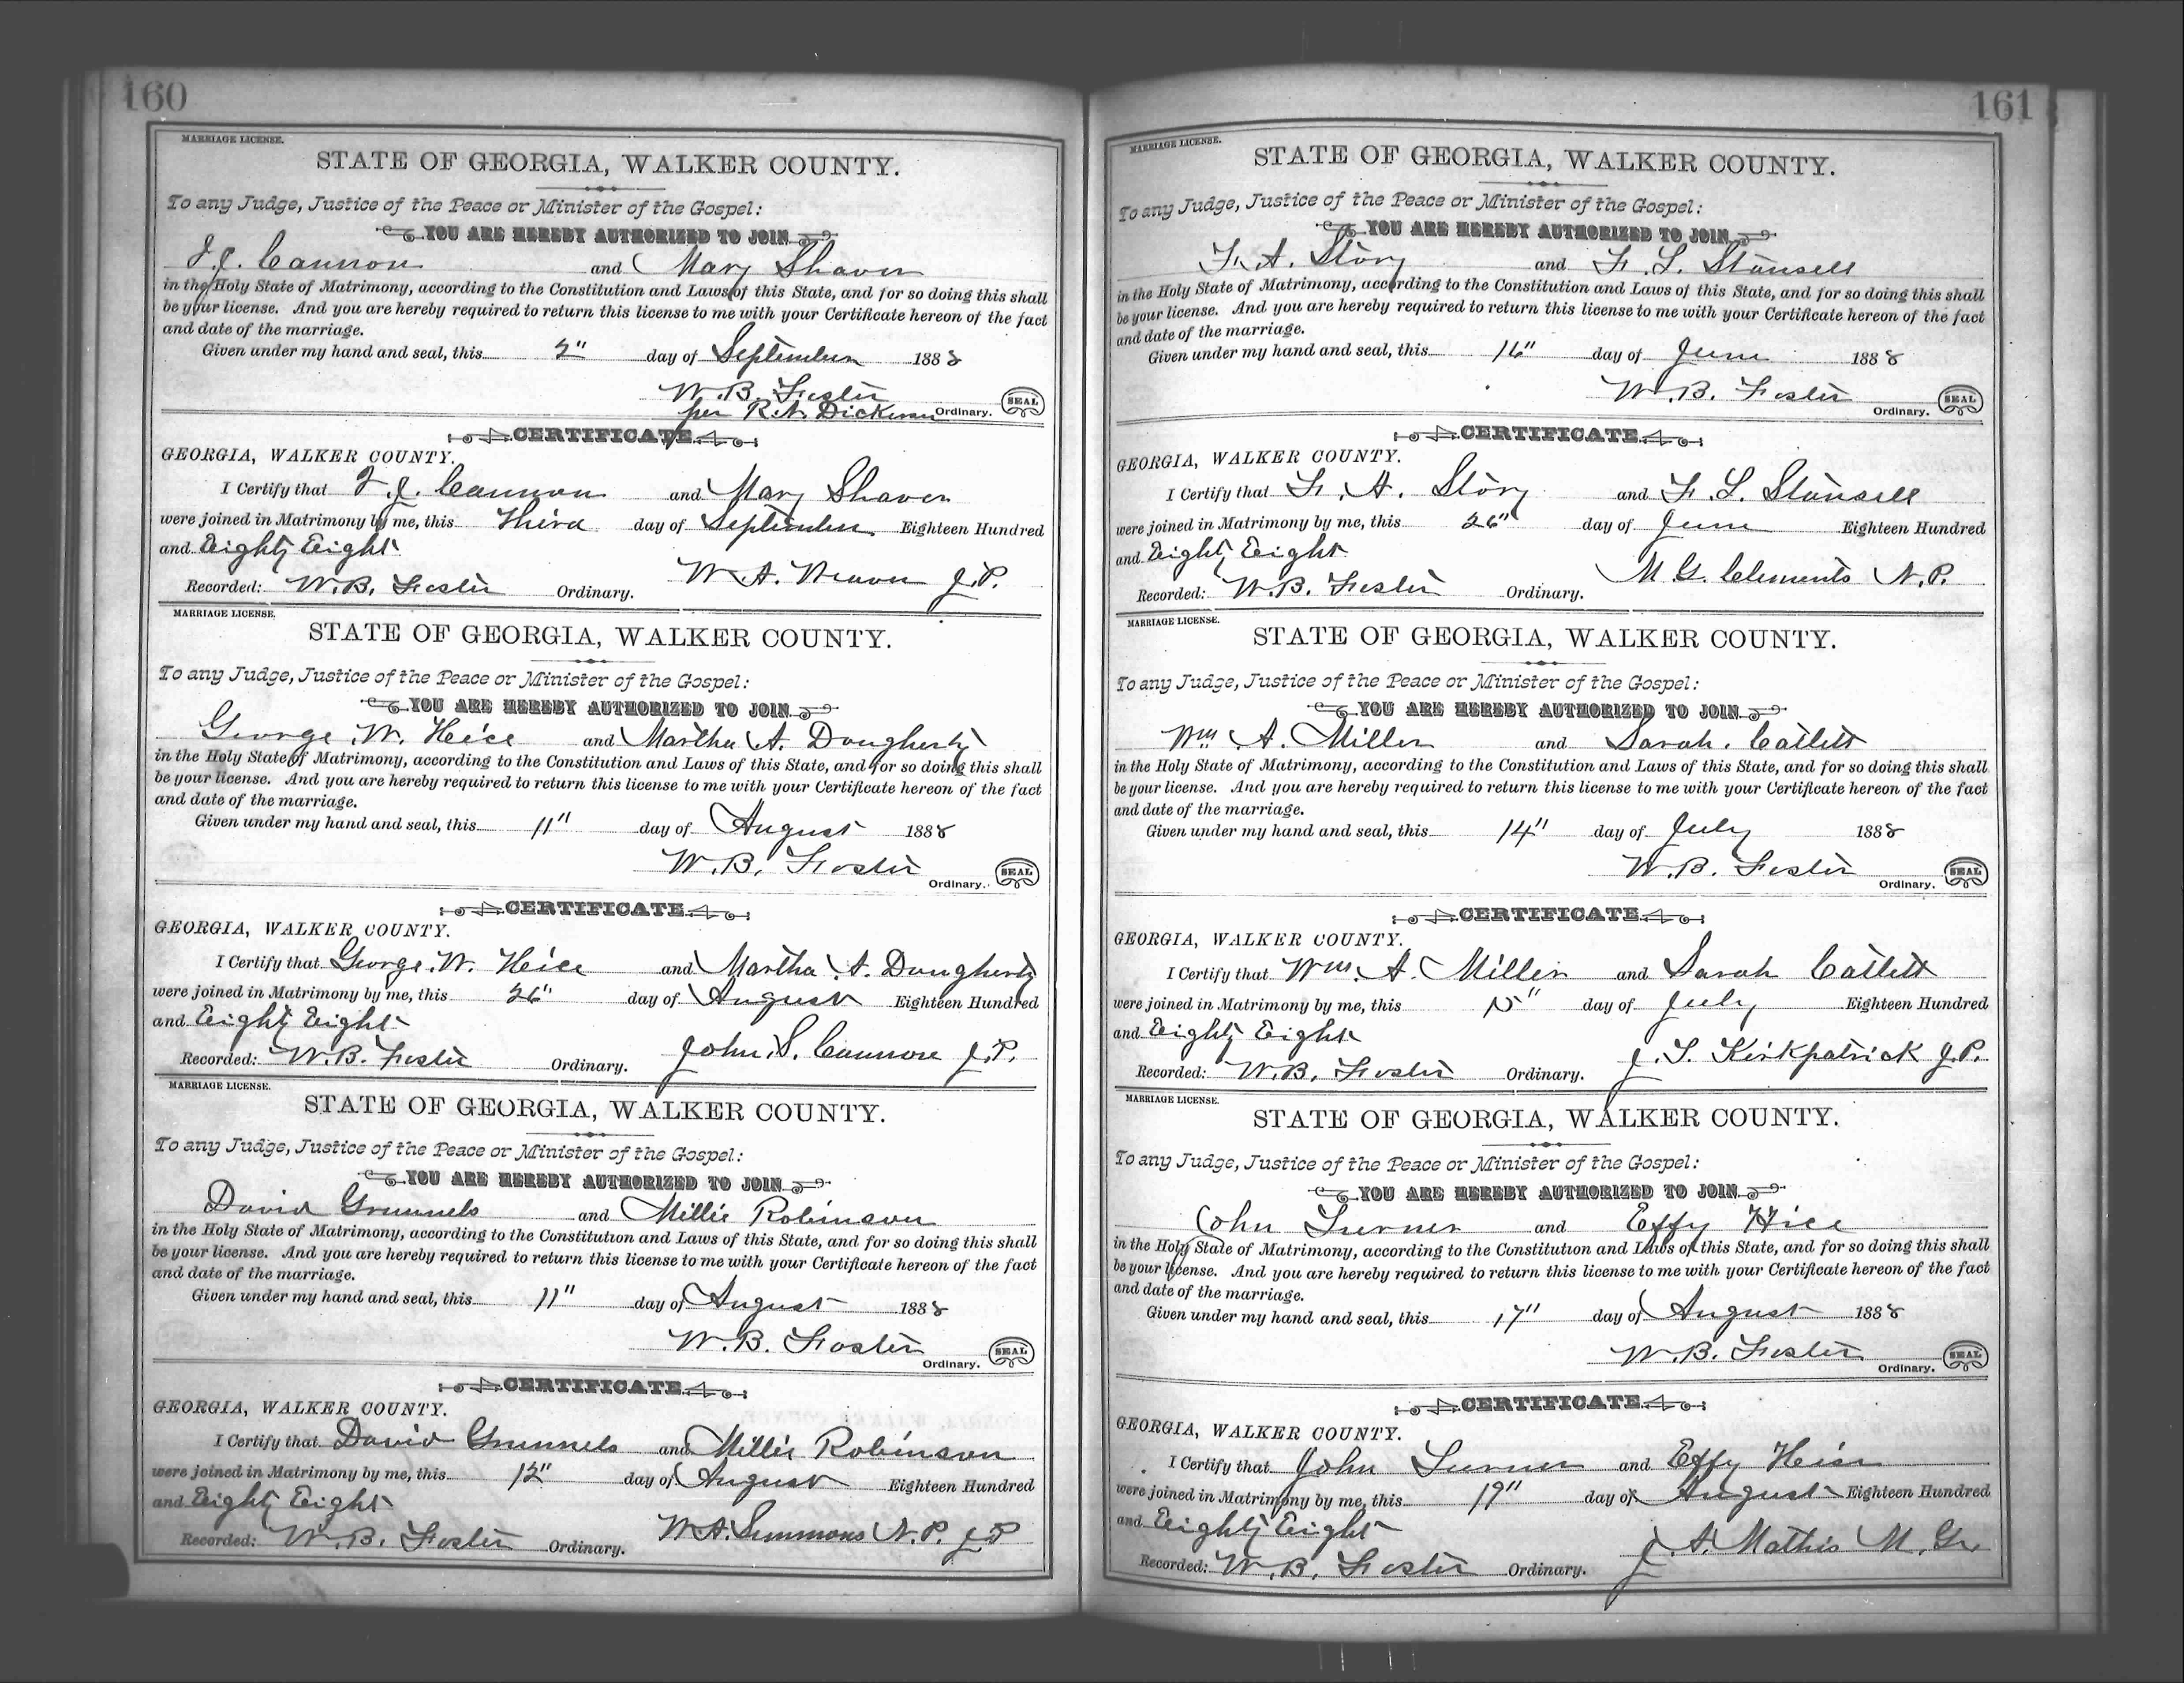 160
MARRIAGE LICENSE.
STATE OF GEORGIA, WALKER COUNTY.
To any Judge, Justice of the Peace or Minister of the Gospel:
YOU ARE HEREBY AUTHORIZED TO JOIN
J. J. Cannon and Mary Shaver
in the Holy State of Matrimony, according to the Constitution and Laws of this State, and for so doing this shall
be your license. And you are hereby required to return this license to me with your Certificate hereon of the fact
and date of the marriage.
Given under my hand and seal, this 2" day of September 1888
W. B. Foster
per R. N. Dickerson Ordinary. SEAL
CERTIFICATE
GEORGIA, WALKER COUNTY.
I Certify that J. J. Cannon and Mary Shaver
were joined in Matrimony by me, this Third day of September Eighteen Hundred
and Eighty Eight
W. A. Weaver J.P.
Recorded: W. B. Foster Ordinary.
MARRIAGE LICENSE.
STATE OF GEORGIA, WALKER COUNTY.
To any Judge, Justice of the Peace or Minister of the Gospel:
YOU ARE HEREBY AUTHORIZED TO JOIN
George W. Heice and Martha A. Dougherty
in the Holy State of Matrimony, according to the Constitution and Laws of this State, and for so doing this shall
be your license. And you are hereby required to return this license to me with your Certificate hereon of the fact
and date of the marriage.
Given under my hand and seal, this 11" day of August 1888
W. B. Foster
Ordinary. SEAL
CERTIFICATE
GEORGIA, WALKER COUNTY.
I Certify that George W. Heice and Martha A. Dougherty
were joined in Matrimony by me, this 26" day of August Eighteen Hundred
and Eighty Eight
John S. Cannon J.P.
Recorded: W. B. Foster Ordinary.
MARRIAGE LICENSE.
STATE OF GEORGIA, WALKER COUNTY.
To any Judge, Justice of the Peace or Minister of the Gospel:
YOU ARE HEREBY AUTHORIZED TO JOIN
David Grunnels and Millie Robinson
in the Holy State of Matrimony, according to the Constitution and Laws of this State, and for so doing this shall
be your license. And you are hereby required to return this license to me with your Certificate hereon of the fact
and date of the marriage.
Given under my hand and seal, this 11" day of August 1888
W. B. Foster
Ordinary. SEAL
CERTIFICATE
GEORGIA, WALKER COUNTY.
I Certify that David Grunnels and Millie Robinson
were joined in Matrimony by me, this 12" day of August Eighteen Hundred
and Eighty Eight
W. A. Simmons N.P. J P
Recorded: W. B. Foster Ordinary.
161
MARRIAGE LICENSE.
STATE OF GEORGIA, WALKER COUNTY.
To any Judge, Justice of the Peace or Minister of the Gospel:
YOU ARE HEREBY AUTHORIZED TO JOIN
F. A. Story and F. L. Stansell
in the Holy State of Matrimony, according to the Constitution and Laws of this State, and for so doing this shall
be your license. And you are hereby required to return this license to me with your Certificate hereon of the fact
and date of the marriage.
Given under my hand and seal, this 16" day of June 1888
W. B. Foster
Ordinary. SEAL
CERTIFICATE
GEORGIA, WALKER COUNTY.
I Certify that F. A. Story and F. L. Stansell
were joined in Matrimony by me, this 26" day of June Eighteen Hundred
and Eighty Eight
M. G. Clements N. P.
Recorded: W. B. Foster Ordinary.
MARRIAGE LICENSE.
STATE OF GEORGIA, WALKER COUNTY.
To any Judge, Justice of the Peace or Minister of the Gospel:
YOU ARE HEREBY AUTHORIZED TO JOIN
Wm. A. Miller and Sarah Catlett
in the Holy State of Matrimony, according to the Constitution and Laws of this State, and for so doing this shall
be your license. And you are hereby required to return this license to me with your Certificate hereon of the fact
and date of the marriage.
Given under my hand and seal, this 14" day of July 1888
W. B. Foster
Ordinary. SEAL
CERTIFICATE
GEORGIA, WALKER COUNTY.
I Certify that Wm. A. Miller and Sarah Catlett
were joined in Matrimony by me, this 15" day of July Eighteen Hundred
and Eighty Eight
J. S. Kirkpatrick J.P.
Recorded: W. B. Foster Ordinary.
MARRIAGE LICENSE.
STATE OF GEORGIA, WALKER COUNTY.
To any Judge, Justice of the Peace or Minister of the Gospel:
YOU ARE HEREBY AUTHORIZED TO JOIN
John Turner and Effy Hice
in the Holy State of Matrimony, according to the Constitution and Laws of this State, and for so doing this shall
be your license. And you are hereby required to return this license to me with your Certificate hereon of the fact
and date of the marriage.
Given under my hand and seal, this 17" day of August 1888
W. B. Foster
Ordinary. SEAL
CERTIFICATE
GEORGIA, WALKER COUNTY.
I Certify that John Turner and Effy Heise
were joined in Matrimony by me, this 19" day of August Eighteen Hundred
and Eighty Eight
J. A. Mathis M. G.
Recorded: W. B. Foster Ordinary.